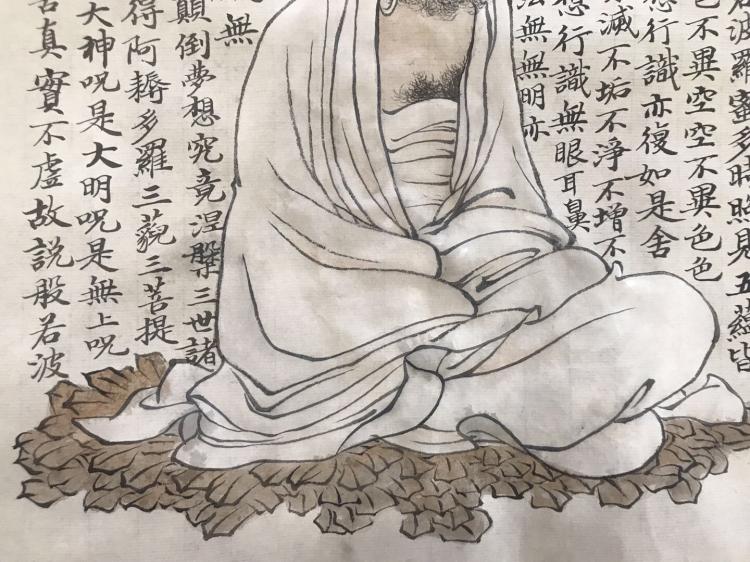 若波羅蜜多時照見五蘊皆
色不異空空不異色色
想行識亦復如是舍
滅不垢不淨不增不
想行識無眼耳鼻
法無無明亦
無
顛倒夢想究竟涅槃三世諸
得阿耨多羅三藐三菩提
大神呪是大明呪是無上呪
苦真實不虛故說般若波